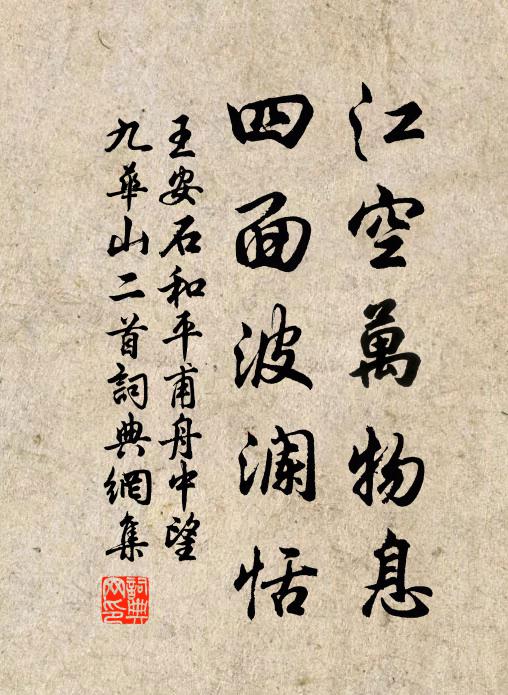 江空萬物息
四面波瀾恬
王安石和平甫舟中望
九華山二首詞典網集
詞典
网印